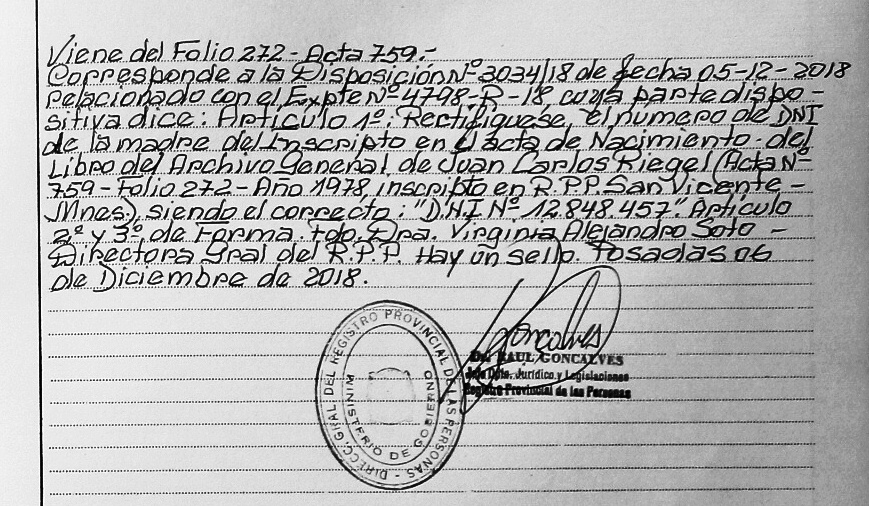 Viene del Folio 272 - Acta 759.-
Corresponde a la Disposición Nº 3034/18 de fecha 05-12-2018
relacionado con el Expte Nº 4798-R-18, cuya parte dispo-
sitiva dice: Artículo 1º: Rectifíquese el numero de DNI
de la madre del Inscripto en el acta de Nacimiento del
Libro del Archivo General, de Juan Carlos Riegel (Acta Nº
759 - Folio 272 - Año 1978, inscripto en R.P.P. San Vicente -
Mnes), siendo el correcto: "D.N.I Nº 12.848.457". Artículo
2º y 3º de Forma. Fdo. Dra. Virginia Alejandro Soto -
Directora Gral del R.P.P. Hay un sello. Posadas 06
de Diciembre de 2018.
Goncalves
Dr. RAUL GONCALVES
Jefe Dpto. Jurídico y Legislaciones
Registro Provincial de las Personas
DIRECC. GRAL. DEL REGISTRO PROVINCIAL DE LAS PERSONAS -
MINISTERIO DE GOBIERNO